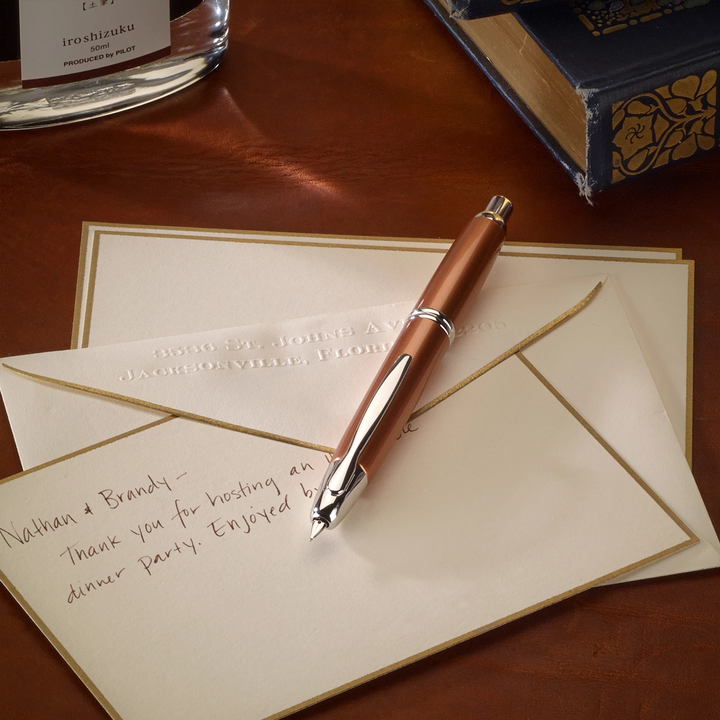 【土筆】
iroshizuku
50ml
PRODUCED by PILOT
3536 St. Johns Av
Jacksonville, Flor
Nathan & Brandy-
Thank you for hosting an
dinner party. Enjoyed